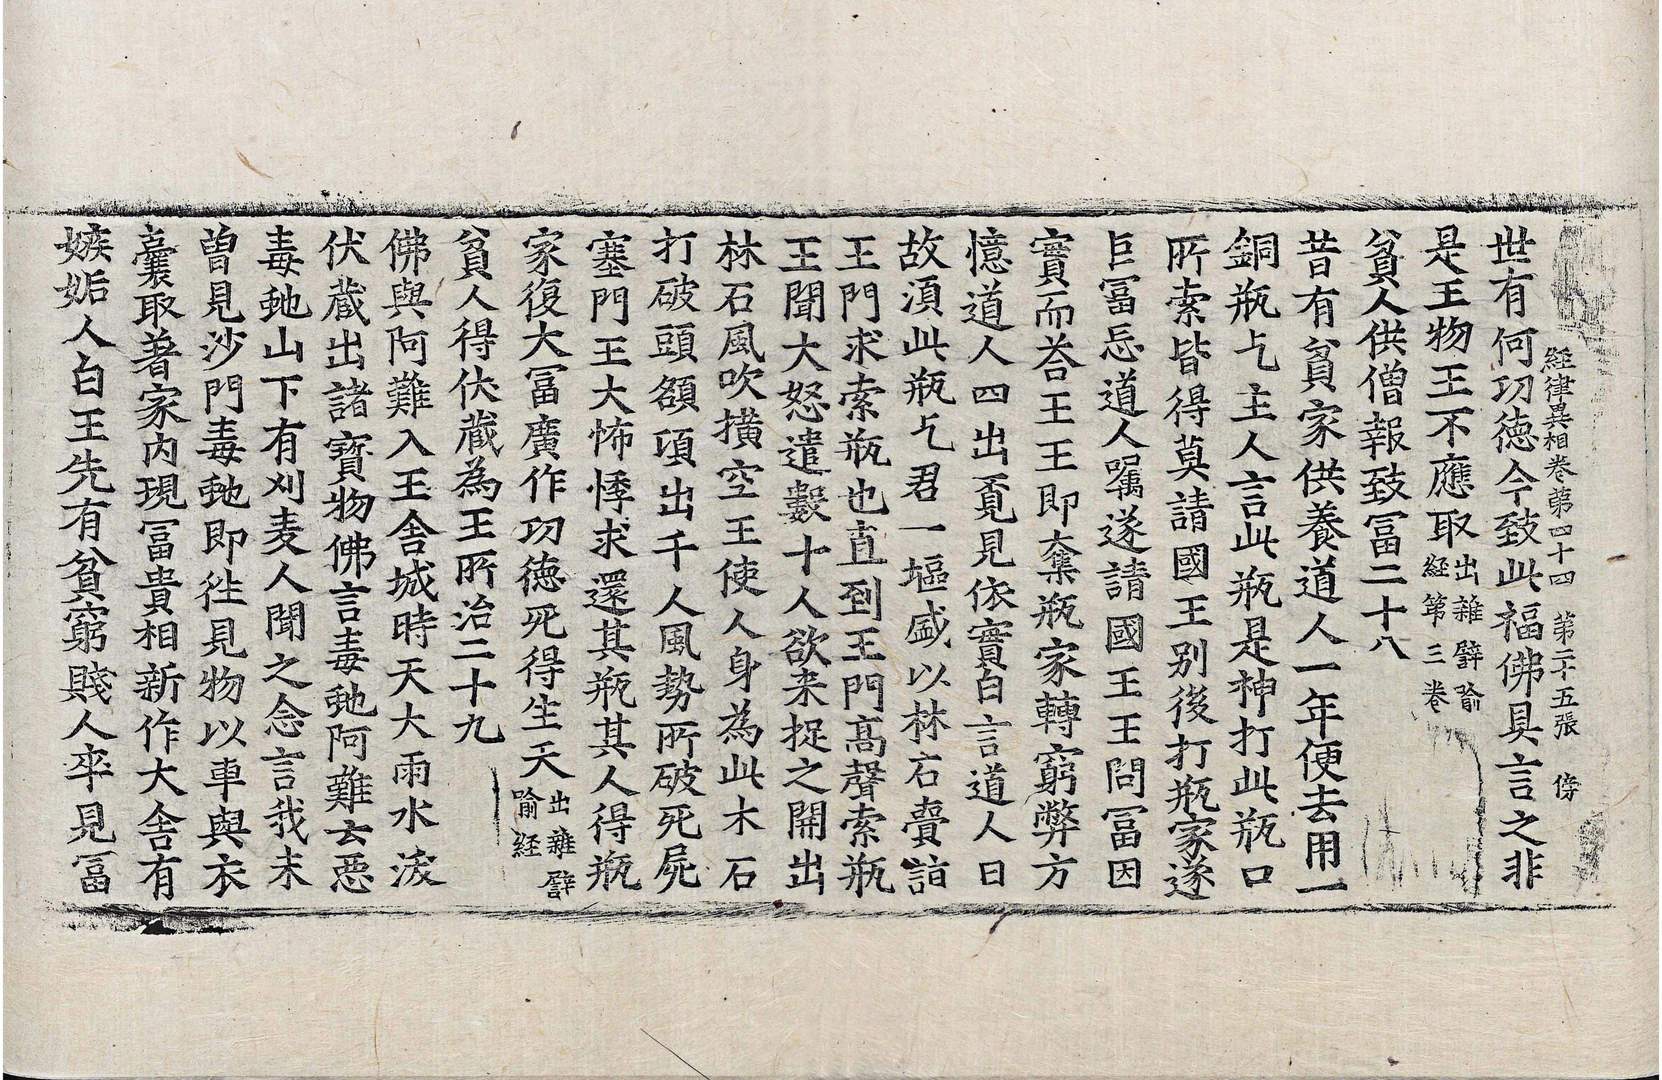 経律異相卷第四十四 第二十五張 傍
世有何功徳今致此福佛具言之非
是王物王不應取出雜譬喻経第三卷
貧人供僧報致冨二十八
昔有貧家供養道人一年便去用一
銅瓶乞主人言此瓶是神打此瓶口
所索皆得莫請國王别後打瓶家遂
巨冨忘道人囑遂請國王王問冨因
實而荅王王即奪瓶家轉窮弊方
憶道人四出覔見依實白言道人曰
故湏此瓶乞君一塸盛以林石賷詣
王門求索瓶也直到王門髙聲索瓶
王聞大怒遣數十人欲来捉之開出
林石風吹撗空王使人身為此木石
打破頭額項出千人風勢所破死屍
塞門王大怖悸求還其瓶其人得瓶
家復大冨廣作功徳死得生天出雜譬喻経
貧人得伏藏為王所治二十九
佛與阿難入王舍城時天大雨水汲
伏蔵出諸寳物佛言毒虵阿難去惡
毒虵山下有刈麦人聞之念言我未
曽見沙門毒虵即徃見物以車與衣
囊取著家内現冨貴相新作大舍有
嫉妬人白王先有貧窮賤人卒見冨